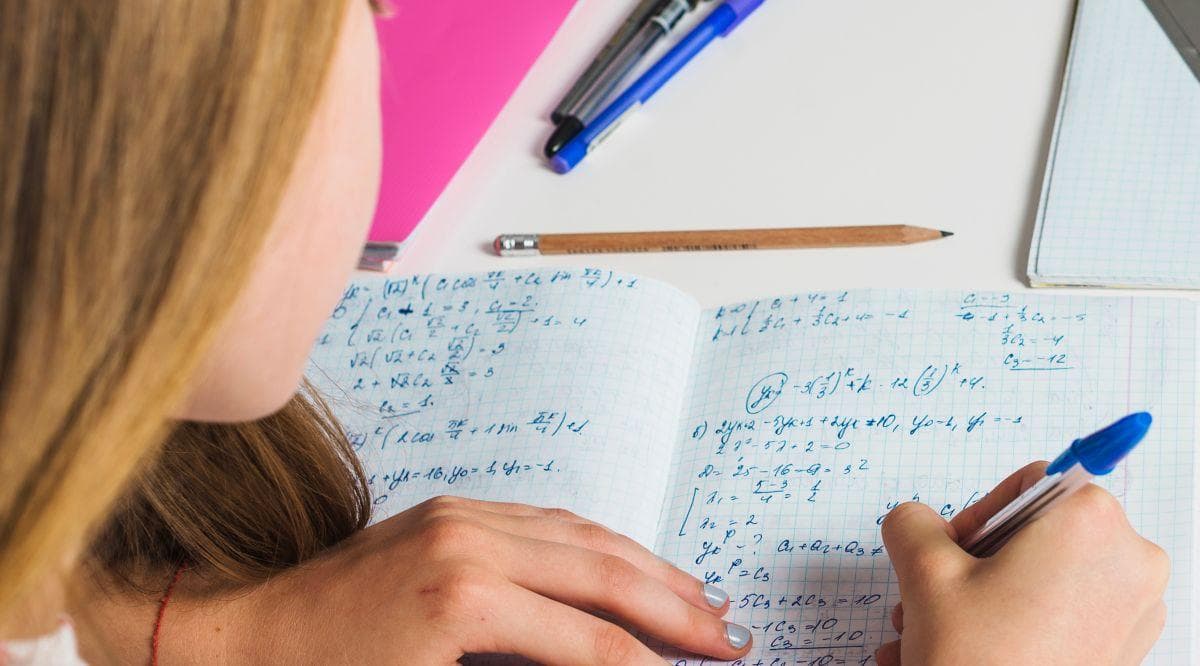 yk = (√2)^k (c₁ cos πk/4 + c₂ sin πk/4) + 1
c₁ + 1 = 3, c₁ = 2.
√2 (c₁ √2/2 + c₂ √2/2) + 1 = 4
√2 (√2 + c₂ √2/2) = 3
2 + √2 c₂ √2/2 = 3
c₂ = 1.
(2 cos πk/4 + 1 sin πk/4) + 1.
+ yk = 16, y₀ = 1, y₁ = -1.
k=0 { c₁ + 4 = 1
k=1 { 1/3 c₁ + 1/3 c₂ + 4 = -1
c₁ = -3
-1 + 1/3 c₂ = -5
1/3 c₂ = -4
c₂ = -12
yk = -3 (1/3)^k + k · 12 (1/3)^k + 4.
б) 2yk+2 - 5yk+1 + 2yk = 10, y₀ = 1, y₁ = -1
2λ² - 5λ + 2 = 0
D = 25 - 16 = 9 = 3²
λ₁ = 5-3/4 = 1/2
λ₂ = 2
yk^p - ? a₁ + a₂ + a₃ ≠
yk^p = c₃
- 5c₃ + 2c₃ = 10
-1c₃ = 10
c₃ = -10
c₁ + c₂ - 10 = 1